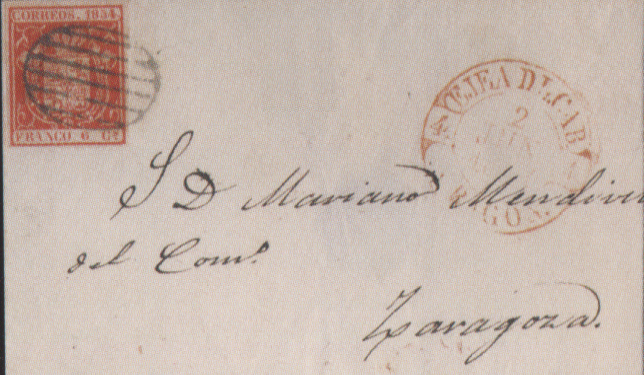 CORREOS. 1854.
FRANCO 6 Cs.
EJEA D L CAB
2
GON.
S D Mariano
del Com.º
Zaragoza.